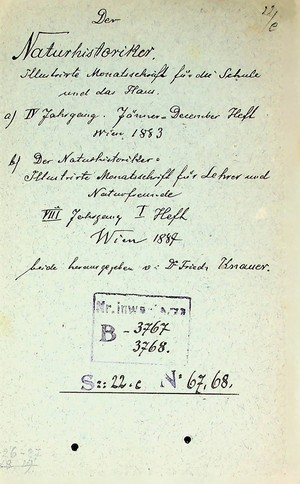 22/c
Der
Naturhistoriker.
Illustrirte Monatsschrift für die Schule
und das Haus.
a) IV Jahrgang. Jänner-December Heft
Wien 1883
b) Der Naturhistoriker-
Illustrirte Monatsschrift für Lehrer und
Naturfreunde
VIII Jahrgang I Heft
Wien 1884
beide herausgegeben v: Dr Friedr Knauer.
B - 3767
3768.
S:: 22. c N: 67, 68.
26-27